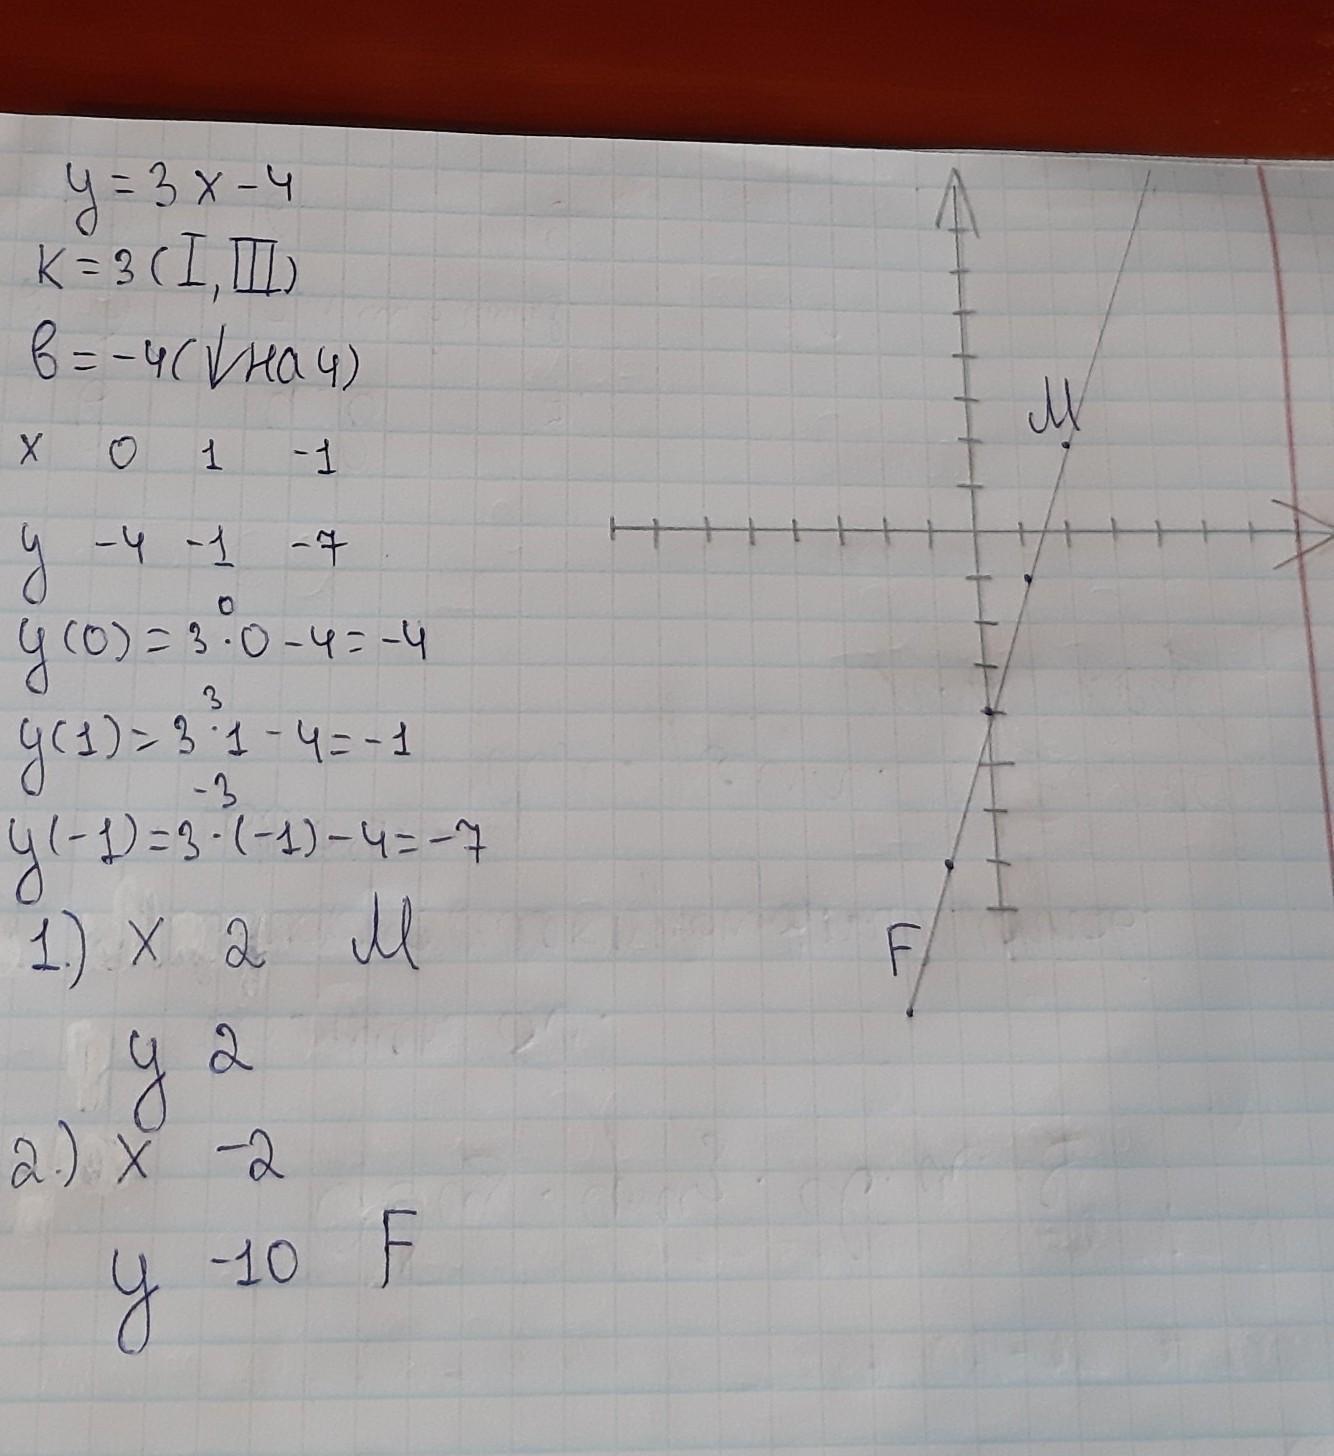 y = 3x - 4
K = 3 (I, III)
в = -4 (↓ на 4)
x 0 1 -1
y -4 -1 -7
0
y(0) = 3·0 - 4 = -4
3
y(1) = 3·1 - 4 = -1
-3
y(-1) = 3·(-1) - 4 = -7
1.) x 2 M
y 2
2.) x -2
y -10 F
M
F